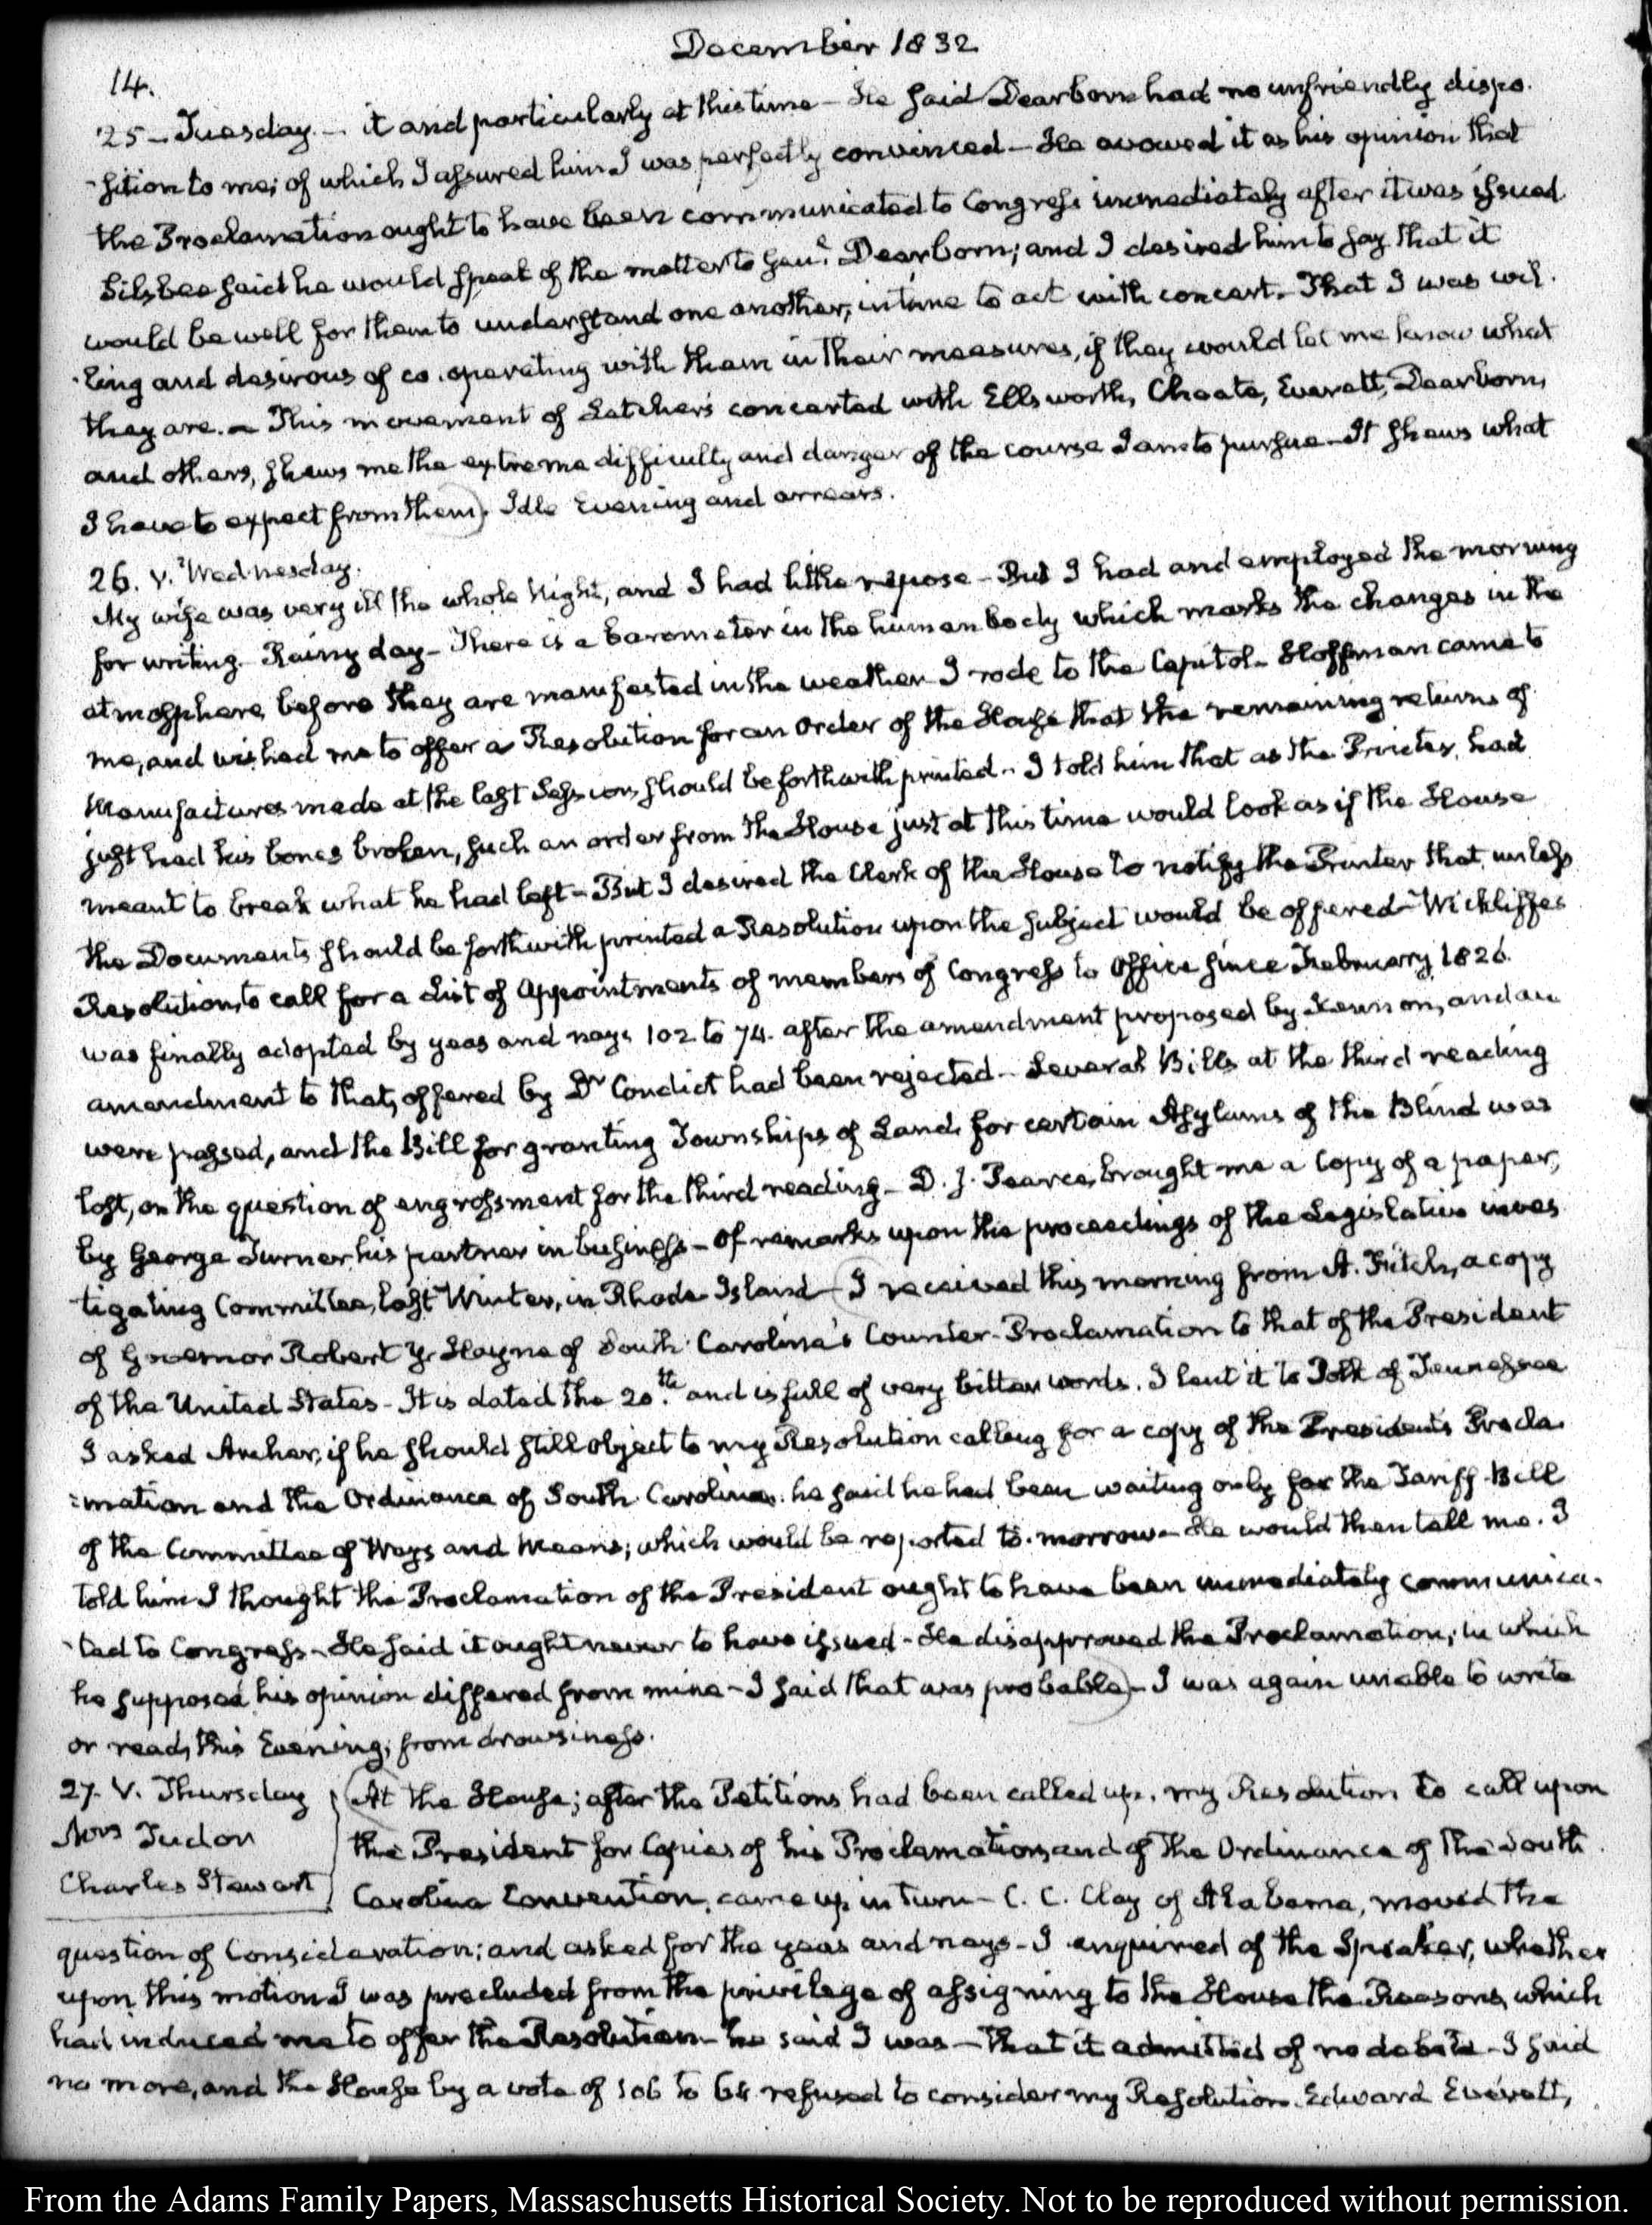 December 1832
14.
25 – Tuesday. – it and particularly at this time – He said Dearborn had no unfriendly dispo-
-sition to me; of which I assured him I was perfectly convinced – He avowed it as his opinion that
the Proclamation ought to have been communicated to Congress immediately after it was issued
Silsbee said he would speak of the matter to Genl. Dearborn; and I desired him to say that it
would be well for them to understand one another, in time to act with concert. That I was wil-
-ling and desirous of co-operating with them in their measures, if they would let me know what
they are. – This movement of Letcher's concerted with Ellsworth, Choate, Everett, Dearborn,
and others, shews me the extreme difficulty and danger of the course I am to pursue – It shews what
I have to expect from them). Idle Evening and arrears.
26. V. Wednesday.
My wife was very ill the whole Night, and I had little repose – But I had and employed the morning
for writing. Rainy day – There is a barometer in the human body which marks the changes in the
atmosphere before they are manifested in the weather. I rode to the Capitol – Hoffman came to
me, and wished me to offer a Resolution for an Order of the House that the remaining returns of
Manufactures made at the last Session should be forthwith printed – I told him that as the Printer, had
just had his bones broken, such an order from the House just at this time would look as if the House
meant to break what he had left – But I desired the Clerk of the House to notify the Printer that unless
the Documents should be forthwith printed a Resolution upon the subject would be offered – Wickliffes
Resolution, to call for a List of Appointments of members of Congress to Office since February 1826.
was finally adopted by yeas and nays 102 to 74. after the amendment proposed by Kennon, and an
amendment to that, offered by Dr Condict had been rejected – Several Bills at the third reading
were passed, and the Bill for granting Townships of Land for certain Asylums of the Blind was
lost, on the question of engrossment for the third reading – D. J. Pearce, brought me a Copy of a paper,
by George Turner his partner in business – of remarks upon the proceedings of the Legislative inves
tigating Committee, last Winter, in Rhode-Island – (I received this morning from A. Fitch, a copy
of Governor Robert Y. Hayne of South Carolina's Counter-Proclamation to that of the President
of the United States – It is dated the 20th. and is full of very bitter words. I lent it to Polk of Tennessee
I asked Archer, if he should still object to my Resolution calling for a copy of the Presidents Procla-
-mation and the Ordinance of South Carolina. he said he had been waiting only for the Tariff-Bill
of the Committee of Ways and Means; which would be reported to-morrow – He would then tell me. I
told him I thought the Proclamation of the President ought to have been immediately communica-
-ted to Congress – He said it ought never to have issued – He disapproved the Proclamation; in which
he supposed his opinion differed from mine – I said that was probable) – I was again unable to write
or read, this Evening, from drowsiness.
27. V. Thursday
Mrs Tudor
Charles Stewart
(At the House; after the Petitions had been called up, my Resolution to call upon
the President for Copies of his Proclamation, and of the Ordinance of the South
Carolina Convention, came up in turn – C. C. Clay of Alabama, moved the
question of Consideration; and asked for the yeas and nays – I enquired of the Speaker, whether
upon this motion I was precluded from the privilege of assigning to the House the Reasons, which
had induced me to offer the Resolution – he said I was – that it admitted of no debate – I said
no more, and the House by a vote of 106 to 64 refused to consider my Resolution. Edward Everett,
From the Adams Family Papers, Massachusetts Historical Society. Not to be reproduced without permission.